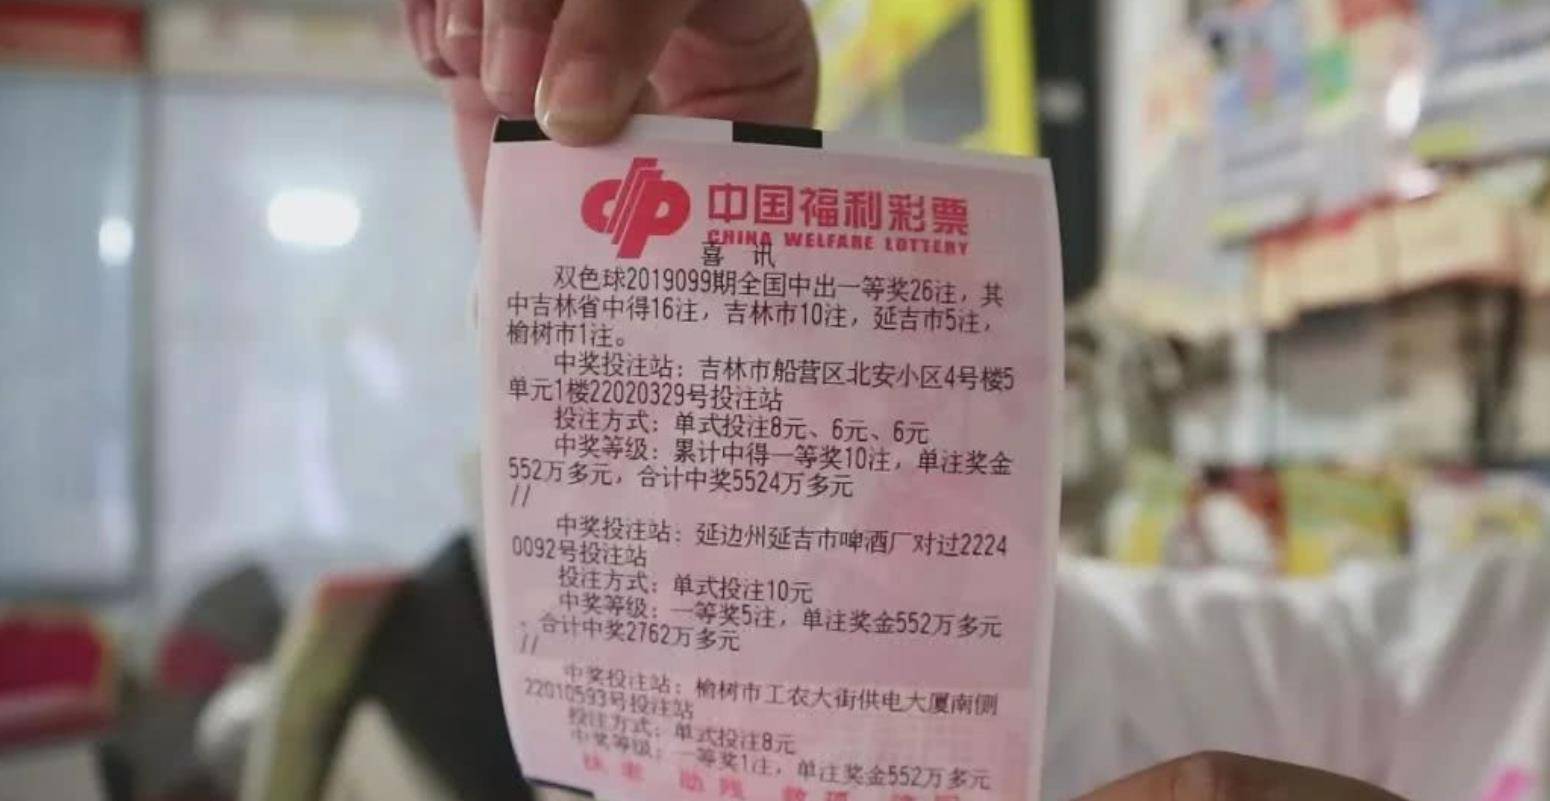 中国福利彩票
CHINA WELFARE LOTTERY
喜 讯
双色球2019099期全国中出一等奖26注，其
中吉林省中得16注，吉林市10注，延吉市5注，
榆树市1注。
中奖投注站：吉林市船营区北安小区4号楼5
单元1楼22020329号投注站
投注方式：单式投注8元、6元、6元
中奖等级：累计中得一等奖10注，单注奖金
552万多元，合计中奖5524万多元
//
中奖投注站：延边州延吉市啤酒厂对过2224
0092号投注站
投注方式：单式投注10元
中奖等级：一等奖5注，单注奖金552万多元
，合计中奖2762万多元
//
中奖投注站：榆树市工农大街供电大厦南侧
22010593号投注站
投注方式：单式投注8元
中奖等级：一等奖1注，单注奖金552万多元
扶老 助残 救孤